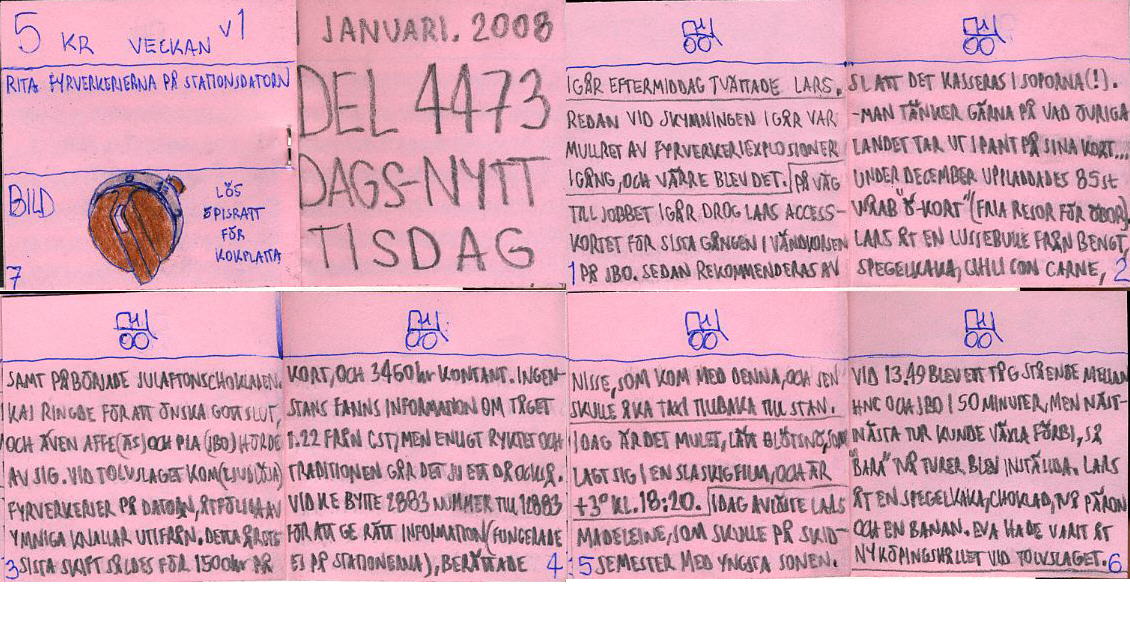 5 KR VECKAN V1
RITA FYRVERKERIERNA PÅ STATIONSDATORN
BILD
LÖS
SPISRATT
FÖR
KOKPLATTA
7
1 JANUARI. 2008
DEL 4473
DAGS-NYTT
TISDAG
IGÅR EFTERMIDDAG TVÄTTADE LARS.
REDAN VID SKYMNINGEN IGÅR VAR
MULLRET AV FYRVERKERIEXPLOSIONER
IGÅNG, OCH VÄRRE BLEV DET. PÅ VÄG
TILL JOBBET IGÅR DROG LARS ACCESS-
KORTET FÖR SISTA GÅNGEN I VÄNDKORSEN
PÅ JBO. SEDAN REKOMMENDERAS AV
1
SL ATT DET KASSERAS I SOPORNA(!).
-MAN TÄNKER GÄRNA PÅ VAD ÖVRIGA
LANDET TAR UT I PANT PÅ SINA KORT...
UNDER DECEMBER UPPLADDADES 85 st
WÅAB "Ö-KORT" (FRIA RESOR FÖR ÖBOR).
LARS ÅT EN LUSSEBULLE FRÅN BENGT,
SPEGELKAKA, CHILI CON CARNE,
2
SAMT PÅBÖRJADE JULAFTONSCHOKLADEN.
KAJ RINGDE FÖR ATT ÖNSKA GOTT SLUT,
OCH ÄVEN AFFE(ÄS) OCH PIA (JBO) HÖRDE
AV SIG. VID TOLVSLAGET KOM (LJUDLÖSA)
FYRVERKERIER PÅ DATORN, ÅTFÖLJDA AV
YMNIGA KNALLAR UTIFRÅN. DETTA ÅRETS
SISTA SKIFT SÅLDES FÖR 1500kr PÅ
3
KORT, OCH 3460 kr KONTANT. INGEN-
STANS FANNS INFORMATION OM TÅGET
1.22 FRÅN CST, MEN ENLIGT RYKTET OCH
TRADITIONEN GÅR DET JU ETT DÅ OCKSÅ.
VID KE BYTTE 2883 NUMMER TILL 12883
FÖR ATT GE RÄTT INFORMATION (FUNGERADE
EJ PÅ STATIONERNA), BERÄTTADE
4
NISSE, SOM KOM MED DENNA, OCH SEN
SKULLE ÅKA TAXI TILLBAKA TILL STAN.
IDAG ÄR DET MULET, LÄTT BLÖTSNÖ, SOM
LAGT SIG I EN SLASKIG FILM, OCH ÄR
+3° KL. 18:20. IDAG AVLÖSTE LARS
MADELEINE, SOM SKULLE PÅ SKID-
SEMESTER MED YNGSTA SONEN.
5
VID 13.49 BLEV ETT TÅG STÅENDE MELLAN
HNC OCH JBO I 50 MINUTER, MEN NÄST-
NÄSTA TUR KUNDE VÄXLA FÖRBI, SÅ
"BARA" TVÅ TURER BLEV INSTÄLLDA. LARS
ÅT EN SPEGELKAKA, CHOKLAD, TVÅ PÄRON
OCH EN BANAN. EVA HADE VARIT ÅT
NYKÖPINGSHÅLLET VID TOLVSLAGET.
6